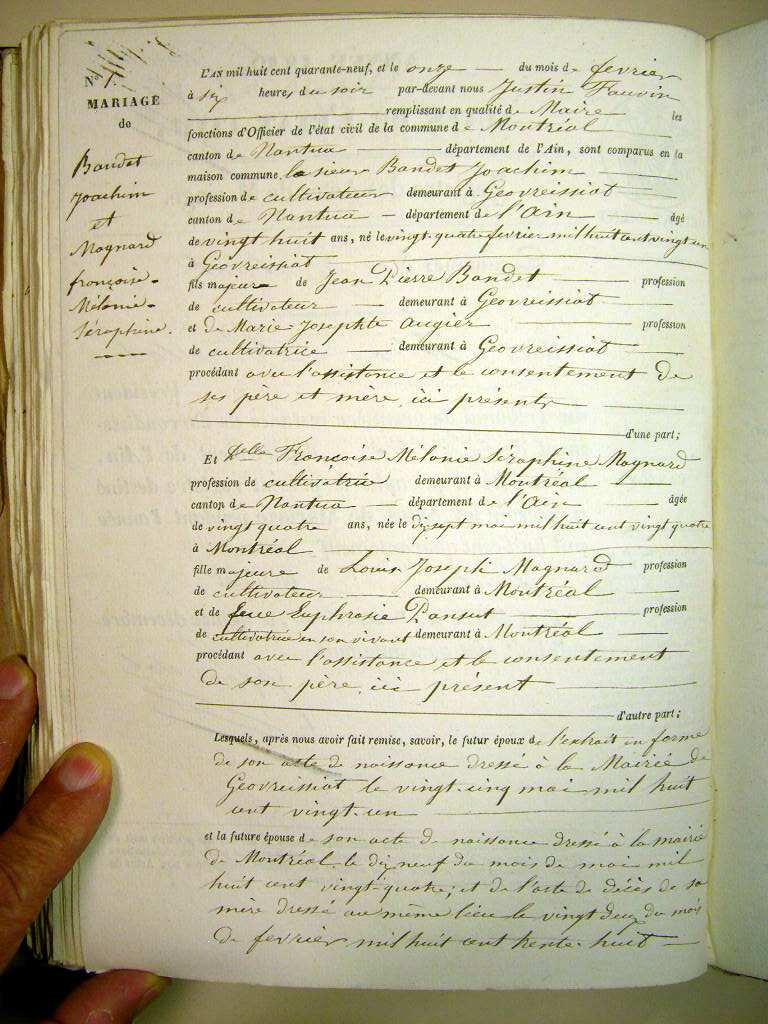 N.
MARIAGE
de
Bandet
Joachim
et
Magnard
françoise-
Mélonie-
Séraphine.
L'AN mil huit cent quarante-neuf, et le onze du mois de fevrier
à six heures du soir par-devant nous Justin Fauvin
remplissant en qualité de Maire les
fonctions d'Officier de l'état civil de la commune de Montréal
canton de Nantua département de l'Ain, sont comparus en la
maison commune le sieur Bandet Joachim
profession de cultivateur demeurant à Geovreissiat
canton de Nantua département de l'Ain âgé
de vingt huit ans, né le vingt quatre fevrier mil huit cent vingt un
à Geovreissiat
fils majeur de Jean Pierre Bandet profession
de cultivateur demeurant à Geovreissiat
et de Marie Josephte Augier profession
de cultivatrice demeurant à Geovreissiat
procédant avec l'assistance et le consentement de
ses père et mère ici présents
d'une part;
Et Delle Françoise Mélonie Séraphine Magnard
profession de cultivatrice demeurant à Montréal
canton de Nantua département de l'Ain âgée
de vingt quatre ans, née le dix sept mai mil huit cent vingt quatre
à Montréal
fille majeure de Louis Joseph Magnard profession
de cultivateur demeurant à Montréal
et de feue Euphrasie Pansut profession
de cultivatrice en son vivant demeurant à Montréal
procédant avec l'assistance et le consentement
de son père, ici présent
d'autre part;
Lesquels, après nous avoir fait remise, savoir, le futur époux de l'extrait en forme
de son acte de naissance dressé à la Mairie de
Geovreissiat le vingt cinq mai mil huit
cent vingt-un
et la future épouse de son acte de naissance dressé à la mairie
de Montréal le dix neuf du mois de mai mil
huit cent vingt-quatre; et de l'acte de décès de sa
mère dressé au même lieu le vingt deux du mois
de fevrier mil huit cent trente-huit